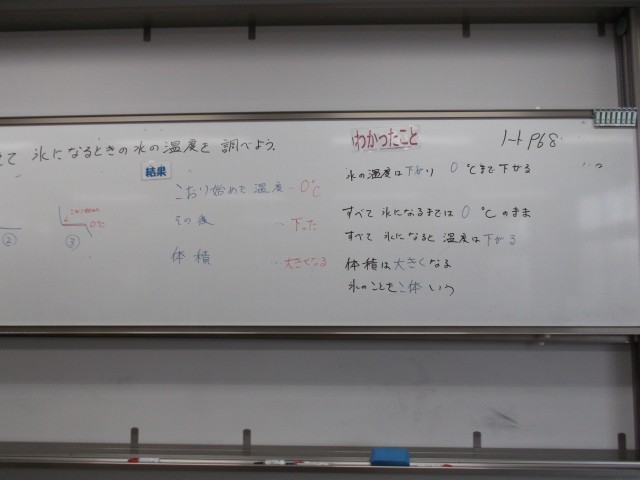 て 氷になるときの水の温度を 調べよう.
結果
こおり始めて 温度 ‥ 0℃
その後 ‥ 下った
体積 ‥ 大きくなる
②
③
0℃
わかったこと
ノート P68
水の温度は下がり 0 ℃まで下がる
すべて 氷になるまでは 0 ℃のまま
すべて 氷になると 温度は下がる
体積は大きくなる
氷のことを こ体 いう